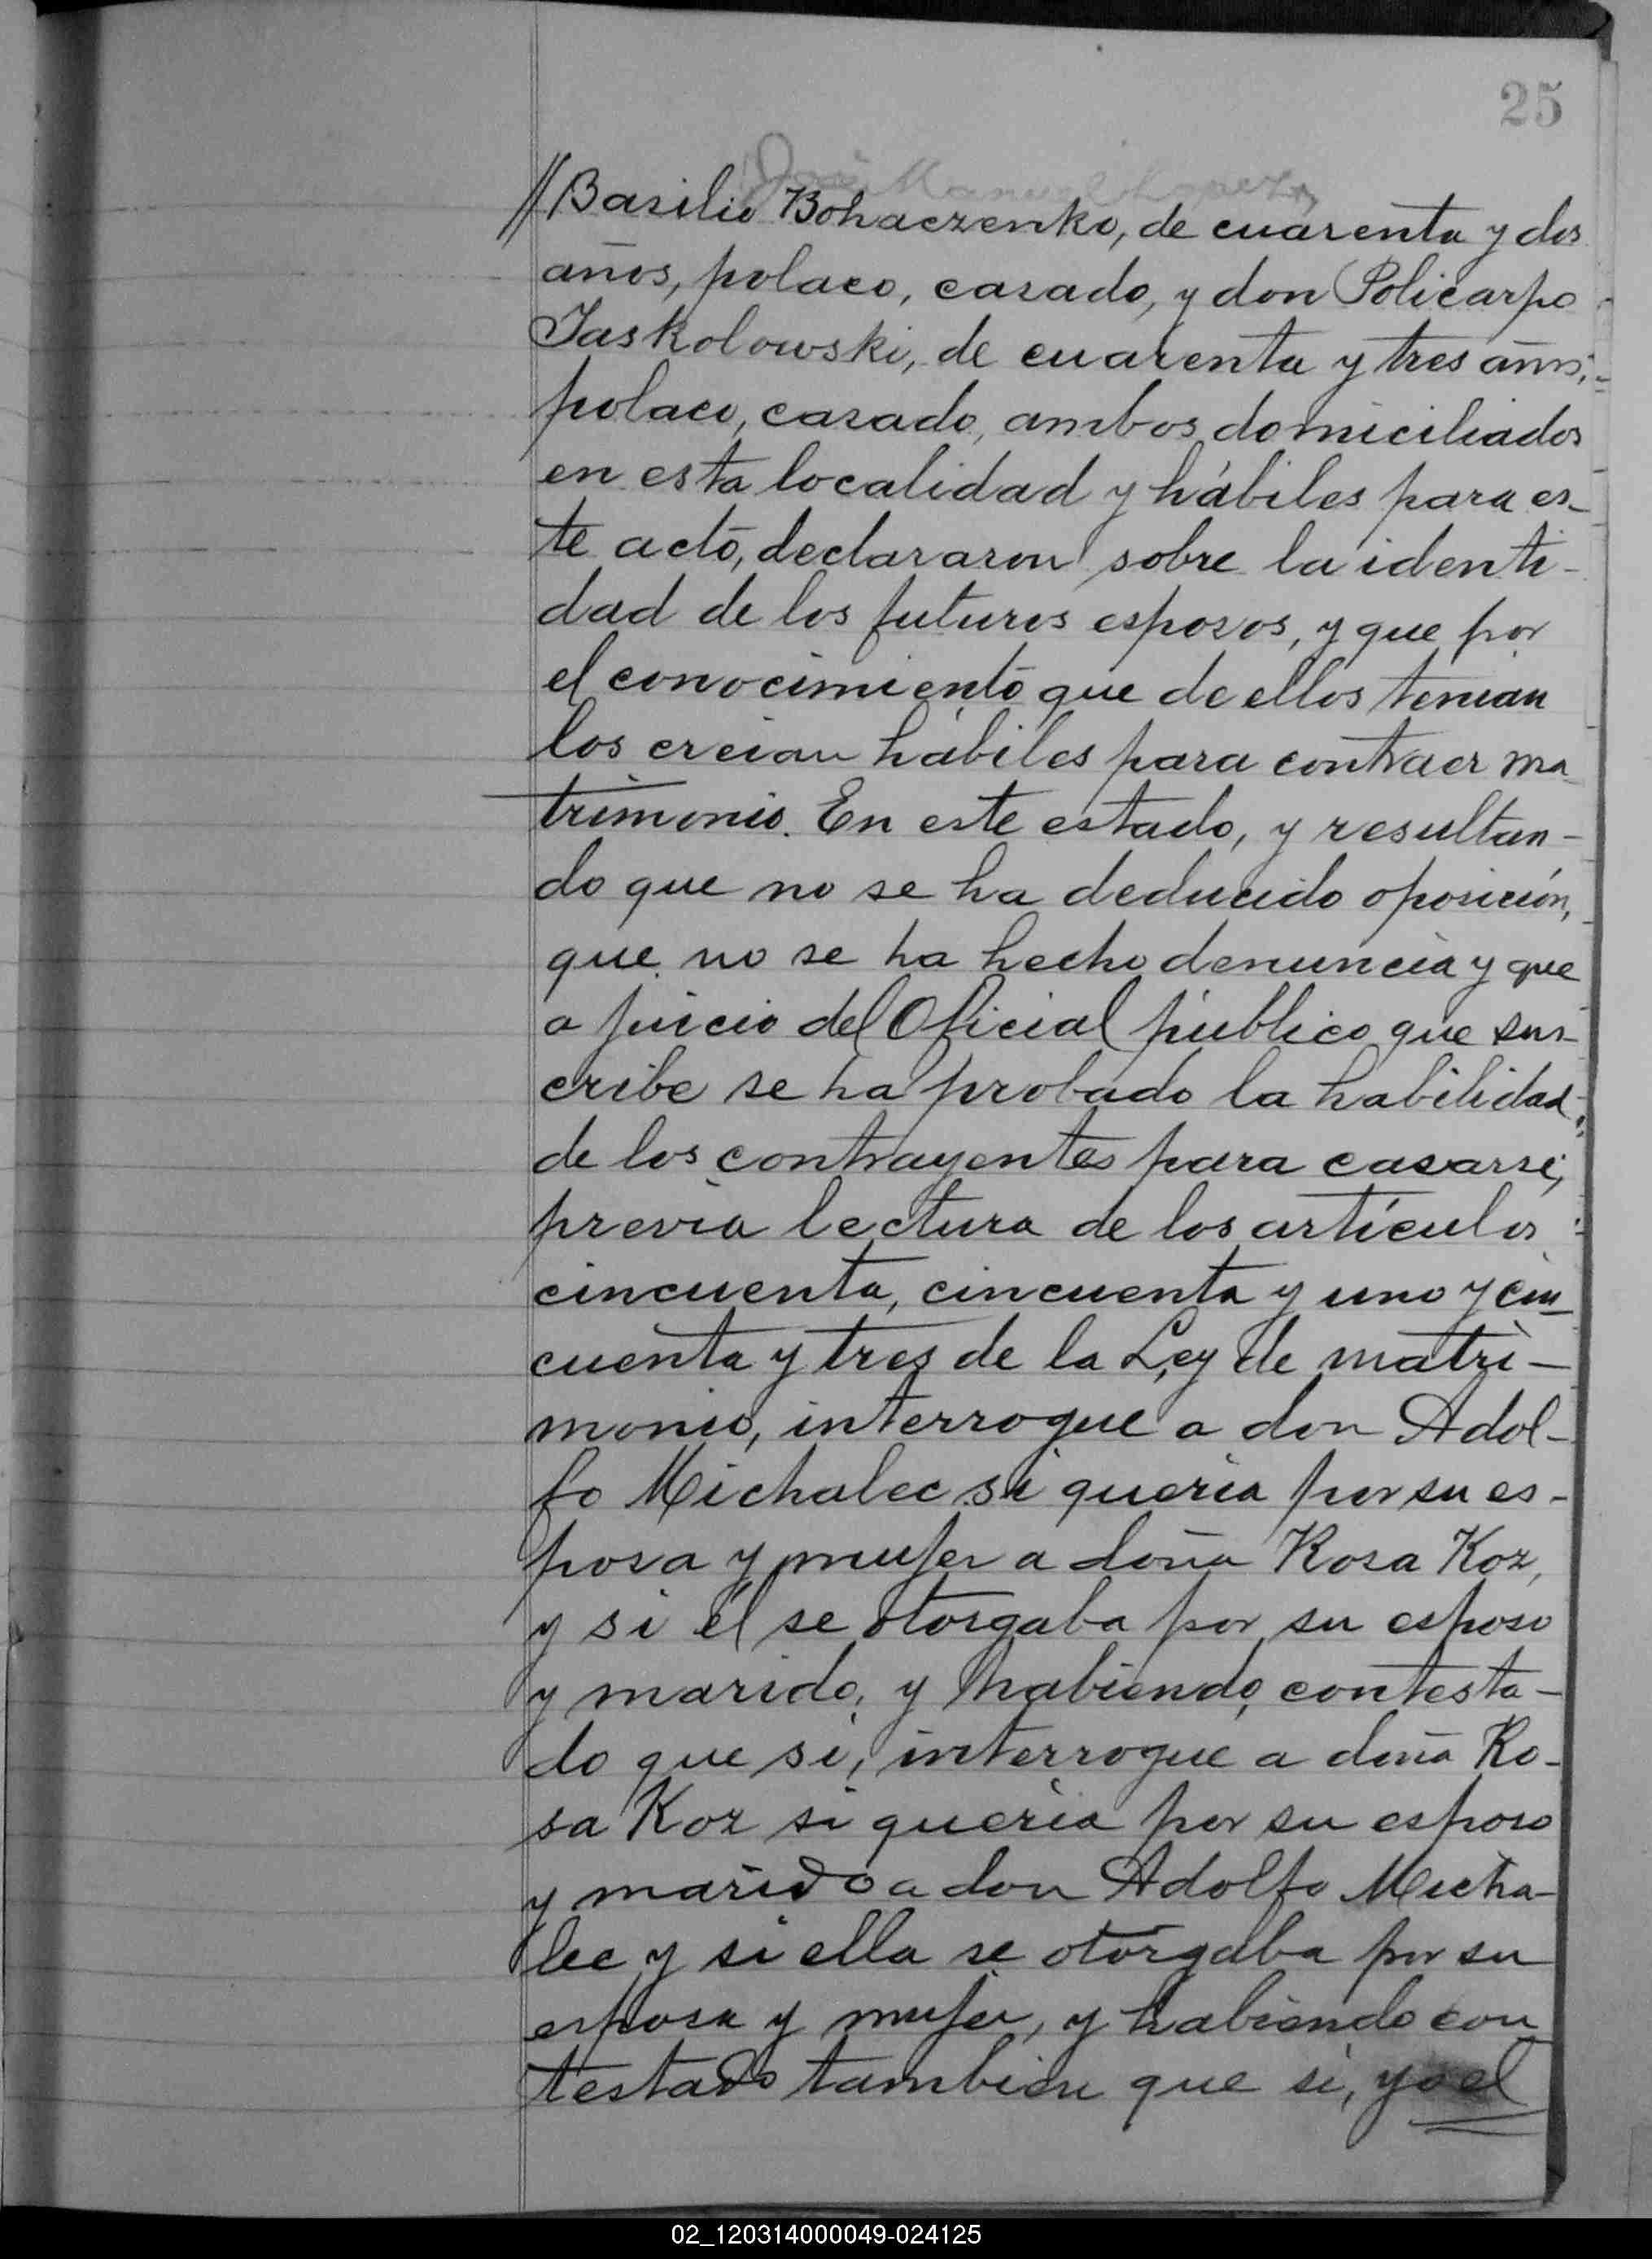 25
José Manuel Lopez
//Basilio Bohaczenko, de cuarenta y dos
años, polaco, casado, y don Policarpo
Jaskolowski, de cuarenta y tres años,
polaco, casado, ambos domiciliados
en esta localidad y hábiles para es-
te acto, declararon sobre la identi-
dad de los futuros esposos, y que por
el conocimiento que de ellos tenian
los creian hábiles para contraer ma
trimonio. En este estado, y resultan-
do que no se ha deducido oposición,
que no se ha hecho denuncia y que
a juicio del Oficial público que sus-
cribe se ha probado la habilidad
de los contrayentes para casarse,
previa lectura de los artículos
cincuenta, cincuenta y uno y cin
cuenta y tres de la Ley de matri-
monio, interrogue a don Adol-
fo Michalec si queria por su es-
posa y mujer a doña Rosa Koz,
y si él se otorgaba por su esposo
y marido, y habiendo contesta-
do que si, interrogue a doña Ro-
sa Koz si queria por su esposo
y marido a don Adolfo Micha-
lec y si ella se otorgaba por su
esposa y mujer, y habiendo con
testado tambien que si, yo el
02_120314000049-024125